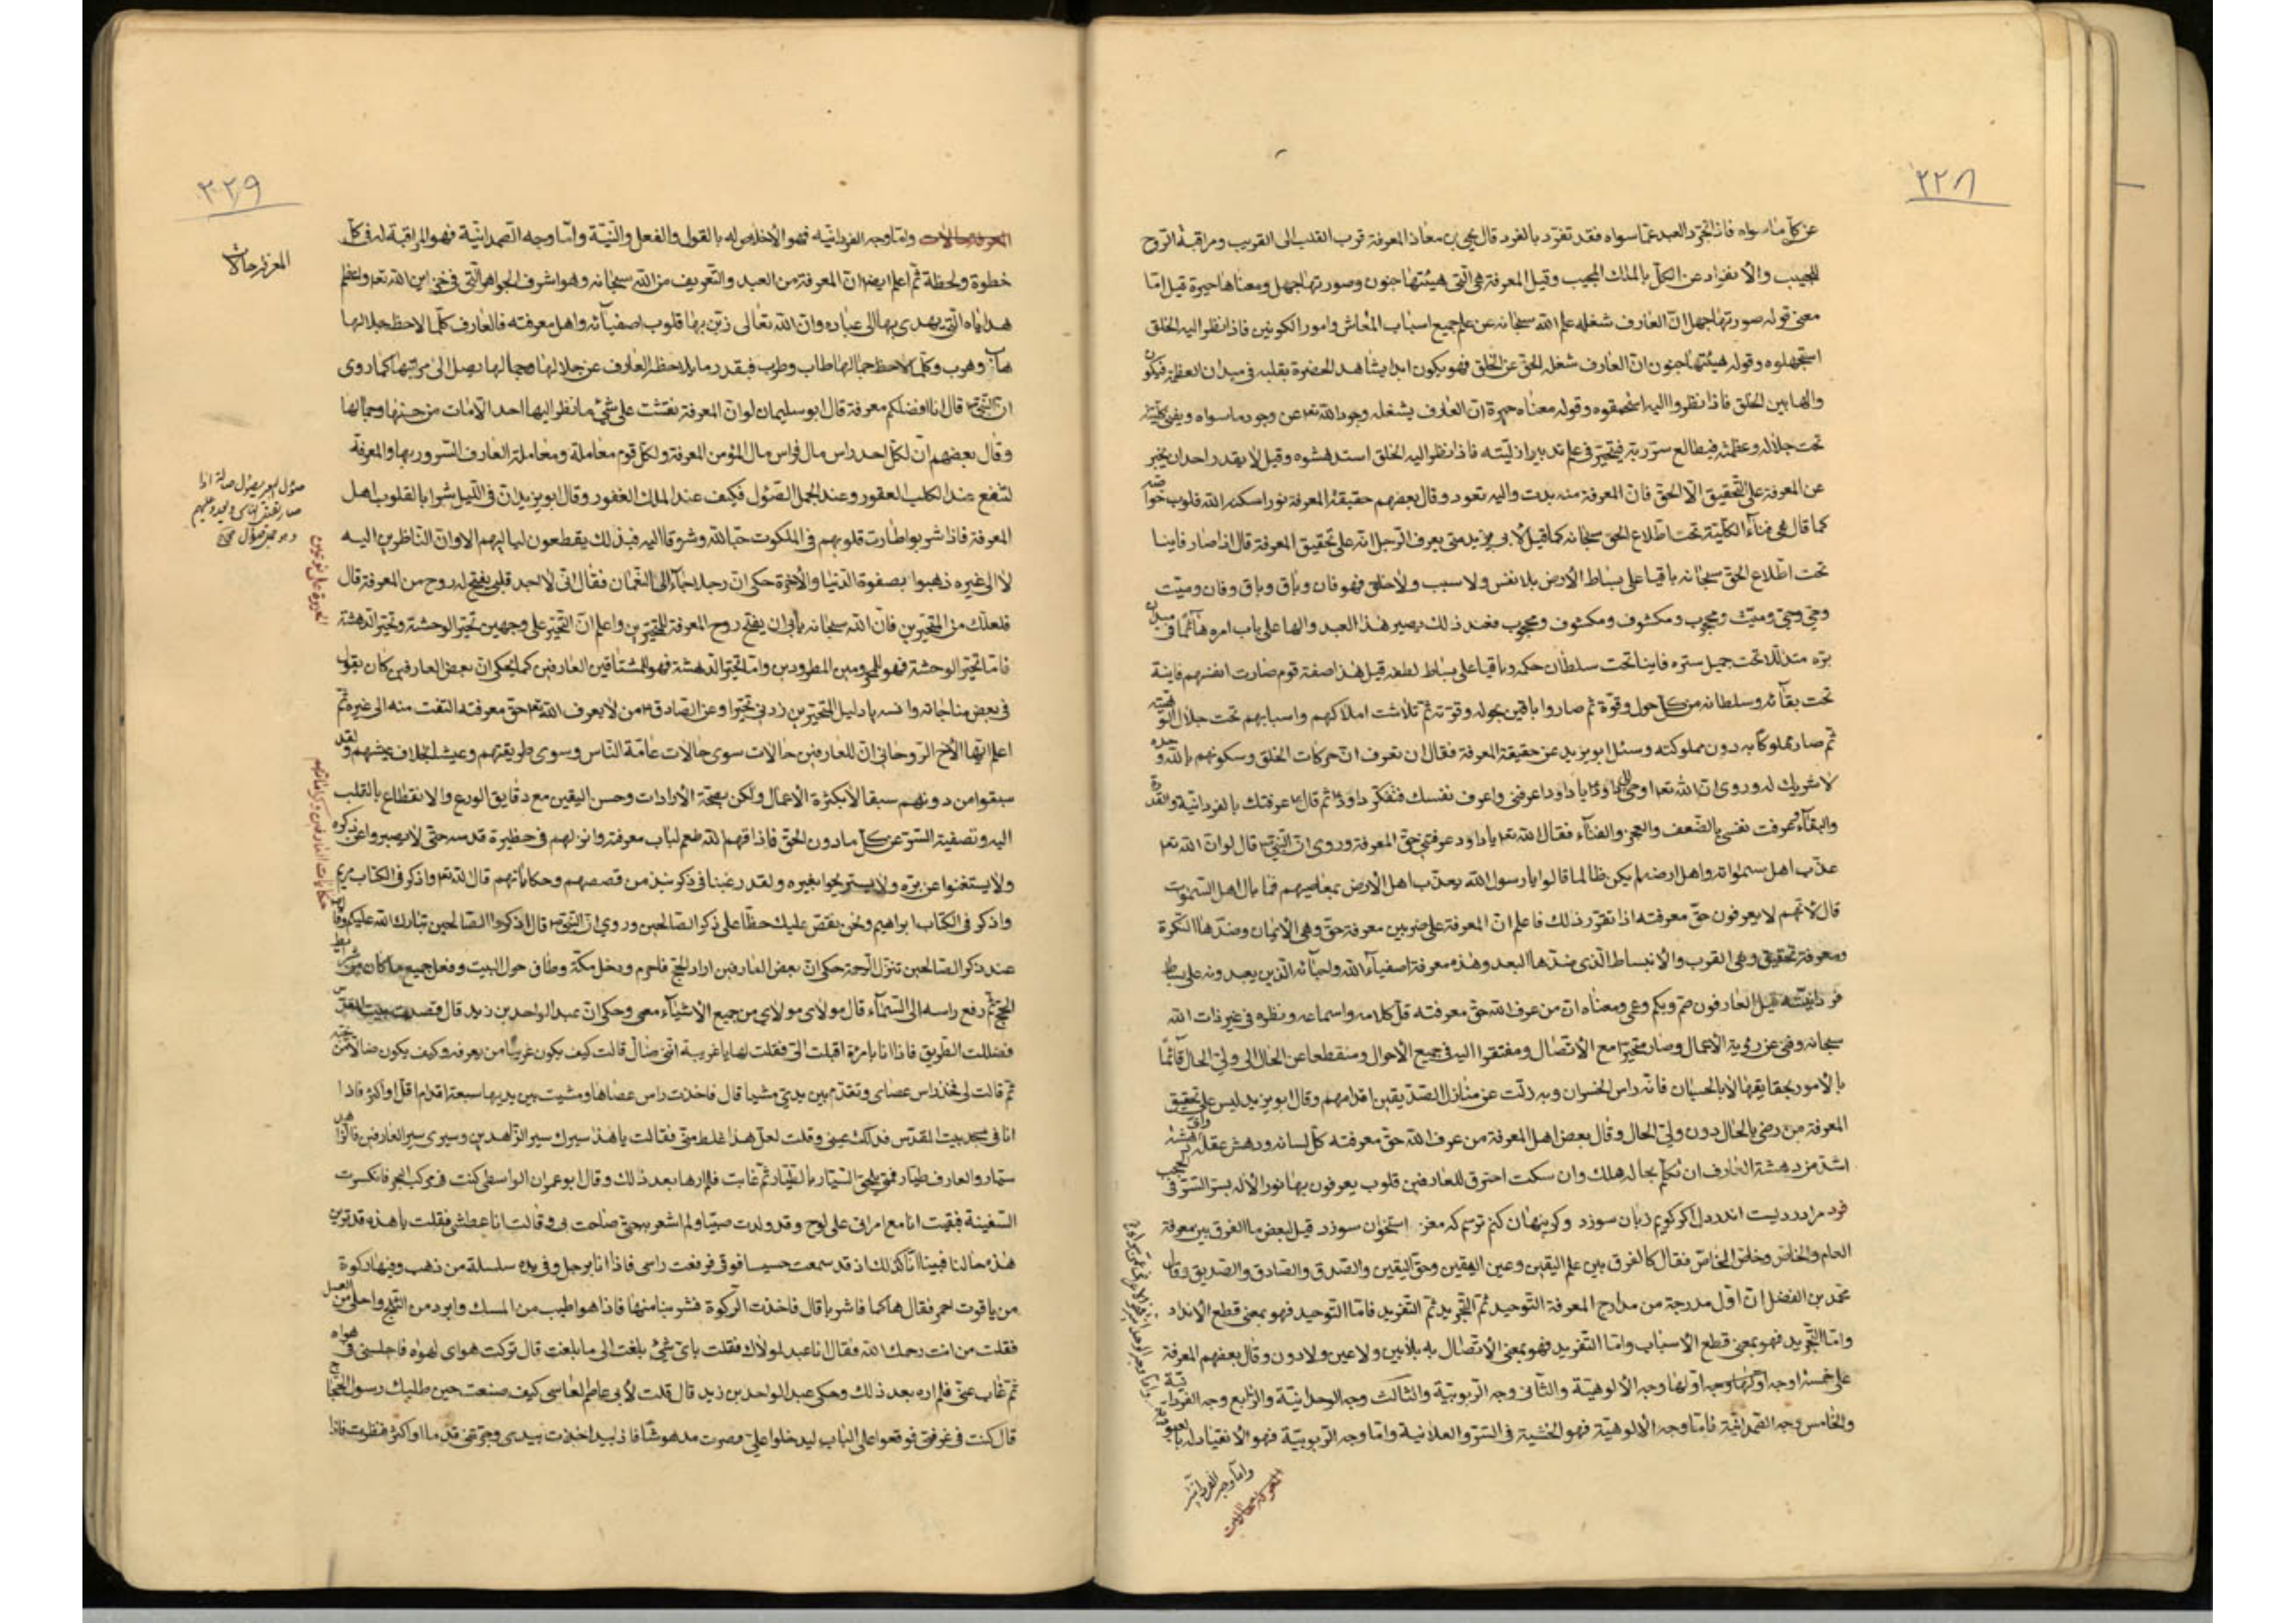 ٢٢٨
عن كل ما سواه فاذا تجرد العبد عمّا سواه فقد تفرّد بالفرد قال يحيى بن معاذ المعرفة قرب القلب الى القريب ومراقبة الروح
للحبيب والانفراد عن الكلّ بالملك المجيب وقيل المعرفة هى التى هيئتها جنون وصورتها جهل ومعناها حيرة قيل امّا
معنى قوله صورتها جهل انّ العارف شغله علم الله سبحانه عن علم جميع اسباب المعاش وامور الكونين فاذا نظر اليه الخلق
استجهلوه وقوله هيئتها جنون انّ العارف شغله الحق عن الخلق فهو يكون ابدا يشاهد الحضرة بقلبه فى ميدان العظمة فيكون
والها بين الخلق فاذا نظروا اليه استحمقوه وقوله معناه حيرة انّ العارف يشغله وجود الله تعـ عن وجود ما سواه ويفنى كليّته
تحت جلاله وعظمته فيطالع سرّ ربّه فيتحيّر فى علم تدبير ازليّته فاذا نظر اليه الخلق استدهشوه وقيل لا يقدر احد ان يخبر
عن المعرفة على التحقيق الّا الحق فان المعرفة منه بدت واليه تعود وقال بعضهم حقيقة المعرفة نور اسكنه الله قلوب خواصّه
كما قال هى فناء الكليّة تحت اطّلاع الحق سبحانه كما قيل لابى يزيد متى يعرف الرجل انّه على تحقيق المعرفة قال اذا صار فانيا
تحت اطّلاع الحق سبحانه باقيا على بساط الارض بلا نفس ولا سبب ولا خلق فهو فان وباق وباق وفان وميّت
وحىّ وحىّ وميّت ومحجوب ومكشوف ومكشوف ومحجوب فعند ذلك يصير هذا العبد والها على باب امره هائما فى ميدان
برّه متذللا تحت جميل ستره فانيا تحت سلطان حكمه وباقيا على بساط لطفه قيل هذا صفة قوم صارت انفسهم فانية
تحت بقائه وسلطانه من كل حول وقوة ثم صاروا باقين بحوله وقوته ثم تلاشت املاكهم واسبابهم تحت جلال الوهيته
ثم صار مملوكا به دون مملوكته وسئل ابو يزيد عن حقيقة المعرفة فقال ان تعرف ان حركات الخلق وسكونهم بالله وحده
لا شريك له وروى ان الله تعـ اوحى الى داود يا داود اعرفنى واعرف نفسك فتفكر داود ثم قال عرفتك بالفردانية والقدرة
والبقاء وعرفت نفسى بالضعف والعجز والفناء فقال الله تعـ يا داود عرفتنى حق المعرفة وروى ان النبى ص قال لو ان الله تعـ
عذّب اهل سمواته واهل ارضه لم يكن ظالما قالوا يا رسول الله يعذب اهل الارض بمعاصيهم فما بال اهل السموات
قال لانهم لا يعرفون حق معرفته اذا تقرّر ذلك فاعلم انّ المعرفة على ضربين معرفة حق وهى الايمان وضدّها النكرة
ومعرفة تحقيق وهى القرب والانبساط الذى ضدّها البعد وهذه معرفة اصفياء الله واحبائه الذين يعبدونه على بساط
فردانيته قيل العارفون صم وبكم وعمى ومعناه ان من عرف الله حق معرفته قلّ كلامه واسماعه ونظره فى غير ذات الله
سبحانه وفنى عن رؤية الاعمال وصار متحيّرا مع الاتصال ومفتقرا اليه فى جميع الاحوال ومنقطعا عن الحال الى ولىّ الحال قائما
بالامور بحقايقها لا بالحسبان فانه راس الخسران وبه زلّت عن منازل الصدّيقين اقدامهم وقال ابو يزيد ليس على تحقيق
المعرفة من رضى بالحال دون ولىّ الحال وقال بعض اهل المعرفة من عرف الله حق معرفته كلّ لسانه ودهش عقله
اشد من دهشة العارف ان تكلم بحاله هلك وان سكت احترق للعارفين قلوب يعرفون بها نور الاله بسر السرّ فى
فرد مرا درديست اندر دل اگر گويم زبان سوزد وگر پنهان كنم ترسم كه مغز استخوان سوزد قيل لبعض ما الفرق بين معرفة
العام والخاص وخاص الخاص فقال كالفرق بين علم اليقين وعين اليقين وحق اليقين والصدق والصادق والصديق وقال
محمد بن الفضل ان اول مدرجة من مدارج المعرفة التوحيد ثم التجريد ثم التفريد فامّا التوحيد فهو بمعنى قطع الانداد
وامّا التجريد فهو بمعنى قطع الاسباب وامّا التفريد فهو بمعنى الاتصال به بلا بين ولا عين ولا دون وقال بعضهم المعرفة
على خمسة اوجه اولها وجه اولها وجه الالوهية والثانى وجه الربوبية والثالث وجه الوحدانية والرابع وجه الفردانية
والخامس وجه الصمدانية فامّا وجه الالوهية فهو الخشية فى السرّ والعلانية وامّا وجه الربوبية فهو الانقياد له بالعبودية
وامّا وجه الفردانيّه
المعرفة حالات
٢٢٩
المعرفة حالات
المعرفة حالات وامّا وجه الفردانيه فهو الاخلاص له بالقول والفعل والنيّة وامّا وجه الصمدانية فهو المراقبة له فى كل
خطوة ولحظة ثم اعلم ايضا ان المعرفة من العبد والتعريف من الله سبحانه وهو اشرف الجواهر التى فى خزاين الله تعـ واعظم
هداياه التى يهدى بها الى عباده وان الله تعالى زيّن بها قلوب اصفيائه واهل معرفته فالعارف كلّما لاحظ جلالها
هاب وهرب وكلّما لاحظ جمالها طاب وطرب فبقدر ما يلاحظ العارف عن جلالها وجمالها يصل الى مراتبها كما روى
ان النبى ص قال انا افضلكم معرفة قال ابو سليمان لو ان المعرفة نقشت على شئ ما نظر اليها احد الّا مات من حسنها وجمالها
وقال بعضهم ان لكل احد راس مال فراس مال المؤمن المعرفة ولكل قوم معاملة ومعاملة العارف السرور بها والمعرفة
لتنفع عند الكلب العقور وعند الجمل الصؤل فكيف عند الملك الغفور وقال ابو يزيد ان فى الليل شرابا لقلوب اهل
المعرفة فاذا شربوا طارت قلوبهم فى الملكوت حبا لله وشوقا اليه فبذلك يقطعون لياليهم الا وان الناظرين اليه
لا الى غيره ذهبوا بصفوة الدنيا والاخرة حكى ان رجلا جاء الى النعمان فقال انى لا اجد قلبى يفتح له روح من المعرفة قال
فلعلك من المتحيرين فان الله سبحانه يأبى ان يفتح روح المعرفة للمتحيرين واعلم انّ التحيّر على وجهين تحيّر الوحشة وتحيّر الدهشة
فامّا تحيّر الوحشة فهو للمحرومين المطرودين وامّا تحيّر الدهشة فهو للمشتاقين العارفين كما يحكى ان بعض العارفين كان يقول
فى بعض مناجاته وانسه يا دليل المتحيّرين زدنى تحيّرا وعن الصادق من لا يعرف الله تعـ حق معرفته التفت منه الى غيره ثم
اعلم ايّها الاخ الروحانى ان للعارفين حالات سوى حالات عامّة الناس وسوى طريقتهم وعيشا بخلاف عيشهم ولقد
سبقوا من دونهم سبقا لا بكثرة الاعمال ولكن بصحّة الارادات وحسن اليقين مع دقايق الورع والانقطاع بالقلب
اليه وتصفية السرّ عن كل ما دون الحق فاذاقهم الله طعم لباب معرفته وانزلهم فى حظيرة قدسه حتى لا يصبروا عن ذكره
ولا يستغنوا عن برّه ولا يستريحوا بغيره ولقد رغبنا فى ذكر نبذ من قصصهم وحكاياتهم قال الله تعـ واذكر فى الكتاب مريم
واذكر فى الكتاب ابراهيم ونحن نقصّ عليك حظّا على ذكر الصالحين وروى ان النبى ص قال اذكروا الصالحين تبارك الله عليكم وقال
عند ذكر الصالحين تنزل الرحمة حكى ان بعض العارفين اراد الحج فاحرم ودخل مكة وطاف حول البيت وفعل جميع ما كان من شرايط
الحج ثم رفع راسه الى السماء قال مولاى مولاى من جميع الاشياء معى وحكى ان عبد الواحد بن زيد قال قصدت بيت المقدس
فضللت الطريق فاذا انا بامرءة اقبلت الىّ فقلت لها يا غريبة انى ضال قالت كيف يكون غريبا من يعرفه وكيف يكون ضالا من يحبّه
ثم قالت لى فخذ راس عصاى وتقدم بين يدىّ مشيا قال فاخذت راس عصاها ومشيت بين يديها سبعة اقدام اقلّ او اكثر فاذا
انا فى مسجد بيت المقدس فدلكت عينى وقلت لعل هذا غلط منّى فقالت يا هذا سيرك سير الزاهدين وسيرى سير العارفين فالزاهد
سيّار والعارف طيّار فمتى يلحق السيّار بالطيّار ثم غابت فلم ارها بعد ذلك وقال ابو عمران الواسطى كنت فى مركب البحر فانكسرت
السفينة فبقيت انا مع امراتى على لوح وقد ولدت صبيّا ولم اشعر به حتى صاحت بى وقالت انا عطشى فقلت يا هذه قد ترين
هذه حالنا فبينا انا كذلك اذ قد سمعت حسيسا فوقى فرفعت راسى فاذا انا برجل وفى يده سلسلة من ذهب وفيها ركوة
من ياقوت احمر فقال هاكما فاشربا قال فاخذت الركوة فشربنا منها فاذا هو اطيب من المسك وابرد من الثلج واحلى من العسل
فقلت من انت رحمك الله فقال انا عبد لمولاك فقلت باىّ شئ بلغت الى ما بلغت قال تركت هواى لهواه فاجلسنى فى هواه
ثم غاب عنّى فلم اره بعد ذلك وحكى عبد الواحد بن زيد قال قلت لابى عاصم العاسى كيف صنعت حين طلبك رسول الحجاج
قال كنت فى غرفتى فوقعوا على الباب ليدخلوا علىّ وصرت مدهوشا فاذا بيد اخذت بيدى وجرّتنى قدما او اكثر فنظرت فاذا
صؤل البعير يصؤل صآلة اذا
صار يقتل الناس ويعدو عليهم
وهو جمل صؤل
حكايات العارفين وكراماتهم